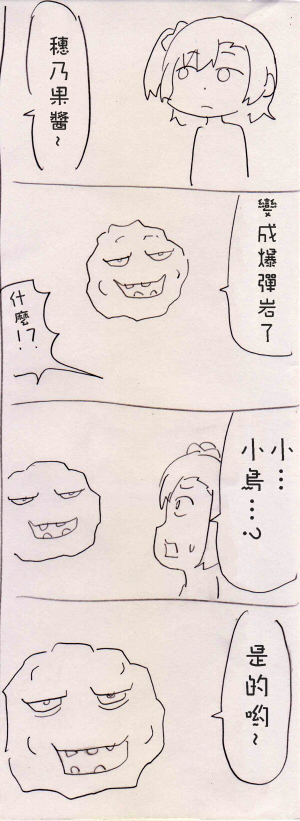 穗乃果醬~
變成爆彈岩了
什麼!?
小…
小鳥…?
是的喲~